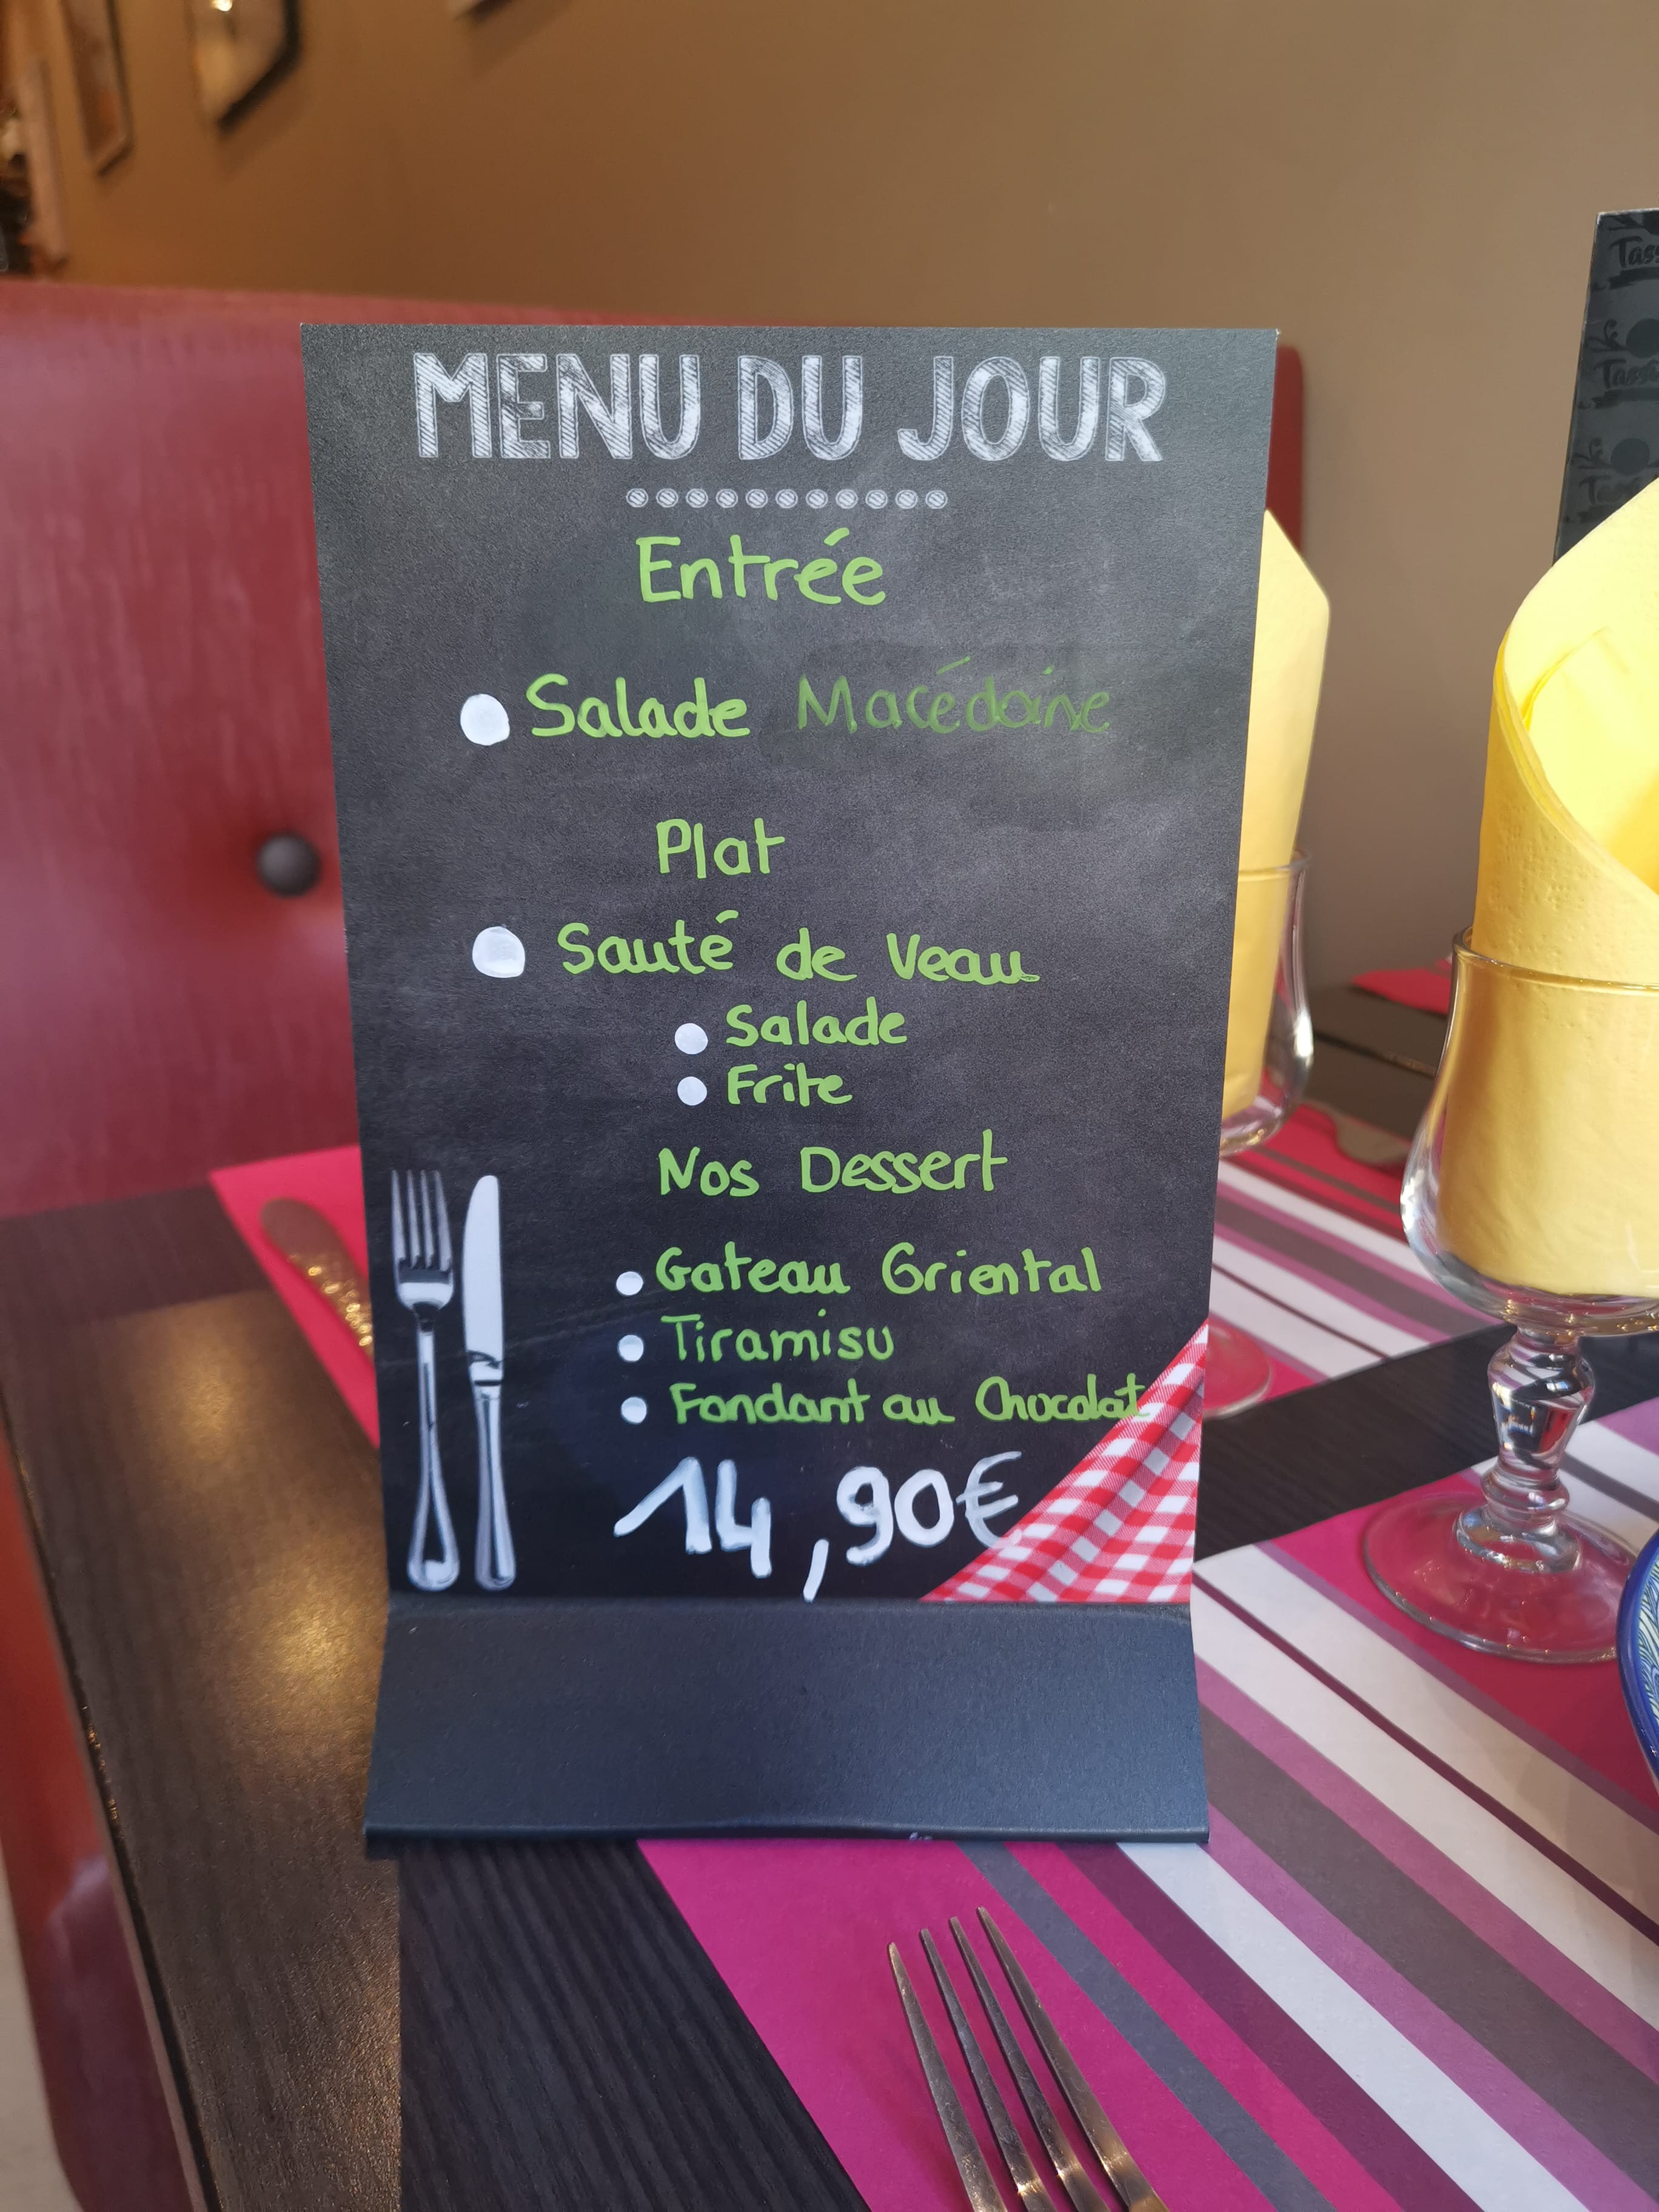 MENU DU JOUR
Entrée
Salade Macédoine
Plat
Sauté de Veau
Salade
Frite
Nos Dessert
Gateau Oriental
Tiramisu
Fondant au Chocolat
14,90€